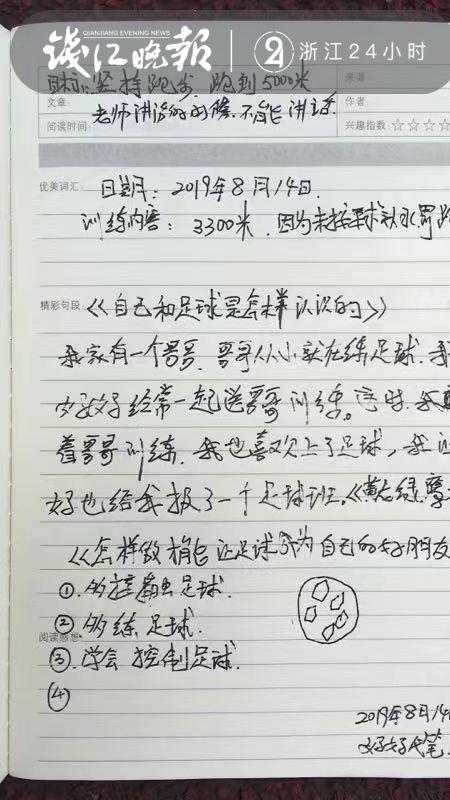 钱江晚报 浙江24小时
QIANJIANG EVENING NEWS
目标：坚持跑步，跑到5000米
来源：
文章：
老师讲话的时候，不能讲话
作者：
阅读时间：
兴趣指数：☆☆☆☆
优美词汇：
日期：2019年8月14日.
训练内容：3300米，因为未按要求
精彩句段：
《自己和足球是怎样认识的》
我家有一个哥哥，哥哥从小就在练足球，我
好好经常一起送哥哥训练。
着哥哥训练，我也喜欢上了足球，
好也给我报了一个足球班。《
《怎样做才能让足球成为自己的好朋友
①.多接触足球.
②多练足球.
阅读感想：
③.学会控制足球.
④
2019年8月14
好好代笔